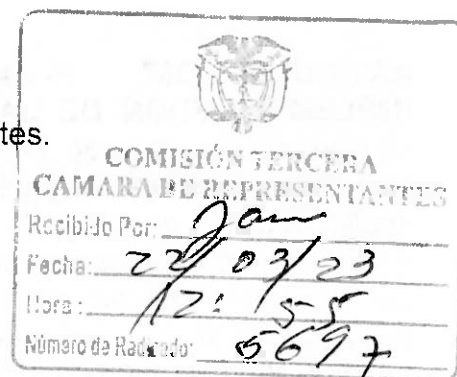 tes.
COMISIÓN TERCERA
CAMARA DE REPRESENTANTES
Recibido Por:
Fecha: 22/03/23
Hora: 12:55
Número de Radicado: 5697